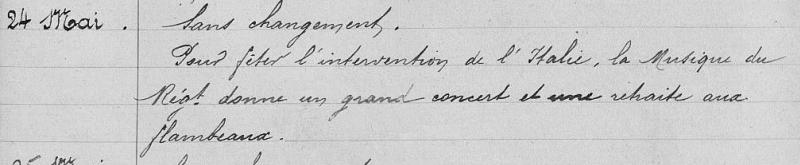 24 Mai . Sans changement.
Pour fêter l'intervention de l'Italie, la Musique du
Régt. donne un grand concert et une retraite aux
flambeaux.